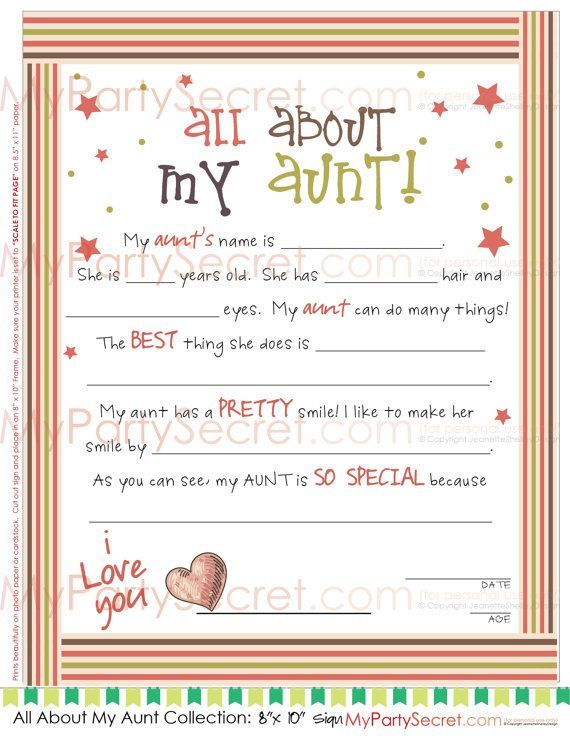 MyPartySecret.com
(for personal use only)
© Copyright JeanetteShelleyDesign
all about
my aunt!
My aunt's name is ____________________.
MyPartySecret.com
(for personal use only)
She is ______ years old. She has ______________ hair and
© Copyright JeanetteShelleyDesign
____________________ eyes. My aunt can do many things!
The BEST thing she does is ______________________
__________________________________________________.
My aunt has a PRETTY smile! I like to make her
MyPartySecret.com
(for personal use only)
© Copyright JeanetteShelleyDesign
smile by __________________________________________.
As you can see, my AUNT is SO SPECIAL because
__________________________________________________.
i
Love
you
DATE
MyPartySecret.com
(for personal use only)
© Copyright JeanetteShelleyDesign
AGE
Prints beautifully on photo paper or cardstock. Cut out sign and place in an 8" x 10" Frame. Make sure your printer is set to "SCALE TO FIT PAGE" on 8.5" x 11" paper.
All About My Aunt Collection: 8"x 10" Sign MyPartySecret.com
(for personal use only)
© Copyright JeanetteShelleyDesign